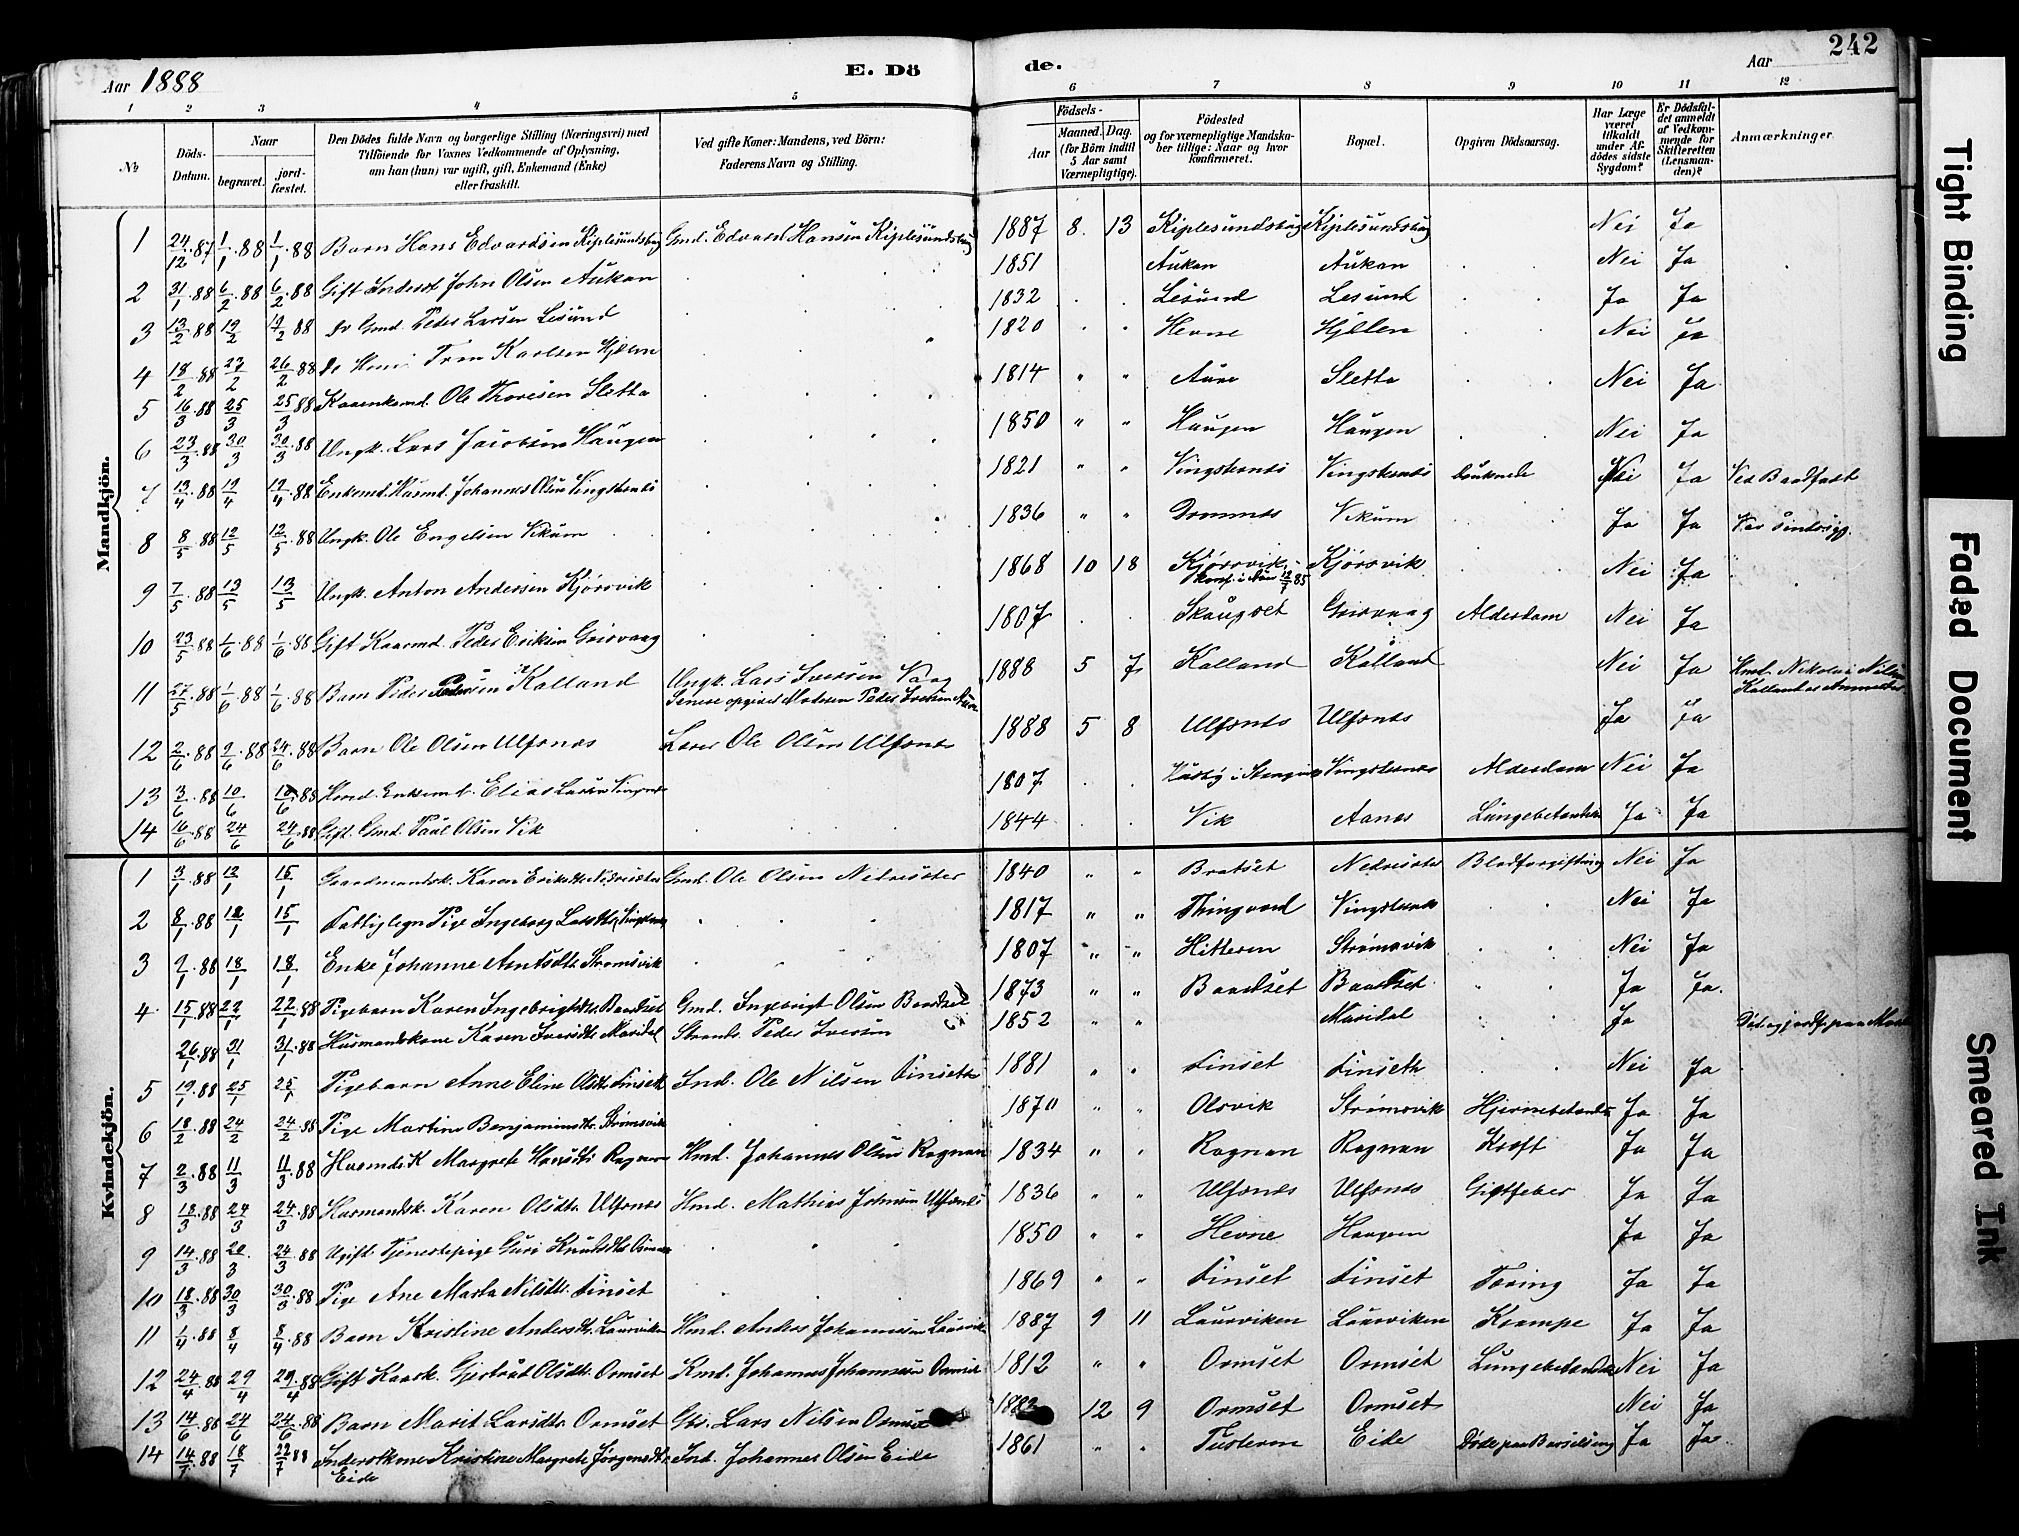 242
Aar 1888
E. Dö
de.
Aar
1 2 3 4 5 6 7 8 9 10 11 12
№
Döds-Datum.
Naar
begravet.
jord-fæstet.
Den Dödes fulde Navn og borgerlige Stilling (Næringsvei) med
Tilföiende for Voxnes Vedkommende af Oplysning,
om han (hun) var ugift, gift, Enkemand (Enke)
eller fraskilt.
Ved gifte Koner: Mandens, ved Börn:
Faderens Navn og Stilling.
Födsels-
Aar
Maaned. Dag.
(for Börn indtil
5 Aar samt
Værnepligtige).
Födested
og for værnepligtige Mandska-
ber tillige: Naar og hvor
konfirmeret.
Bopæl.
Opgiven Dödsaarsag.
Har Læge
været
tilkaldt
under Af-
dödes sidste
Sygdom?
Er Dödsfal-
det anmeldt
af Vedkom-
mende for
Skifteretten
(Lensman-
den)?
Anmærkninger.
Mandkjön.
1 24/12.87 1/1.88 1/1.88 Barn Hans Edvardsen Kiplesundsbug Gmd. Edvard Hansen Kiplesundsbug 1887 8. 13 Kiplesundsbug Kiplesundsbug Nei Ja
2 31/1.88 6/2.88 6/2.88 Gift Inderst John Olsen Aukan 1851 Aukan Aukan Nei Ja
3 13/2.88 19/2 19/2.88 do Gmd. Peder Larsen Lesund 1832 Lesund Lesund Ja Ja
4 18/2.88 27/2 26/2.88 do Karlsen 1820 " " Hevne Hjellen Nei Ja
5 16/3.88 25/3 25/3.88 Ole Thoresen Sletta 1814 " " Aure Sletta Nei Ja
6 23/3.88 30/3 30/3.88 Ungk. Lars Jacobsen Haugen 1850 " " Haugen Haugen Nei Ja
7 13/4.88 19/4 19/4.88 Enkemd. Husmd. Johannes Olsen Vingsternes 1821 " " Vingsternes Vingsternes druknede Nei Ja Ved Baadfart
8 8/5.88 12/5 12/5.88 Ungk. Ole Engelsen Vikum 1836 " " Dromnes Vikum Ja Ja Var sindssyg.
9 7/5.88 13/5 13/5 Ungk. Anton Andersen Kjørsvik 1868 10 18 Kjørsvik Kjørsvik Nei Ja
Konf. i Aure 12/7 85
10 23/5.88 1/6.88 1/6.88 Gift Kaarmd. Peder Eriksen Grisvaag 1807 Skaugset Grisvaag Alderdom Nei Ja
11 27/5.88 1/6.88 1/6.88 Barn Peder Pedersen Kalland Ungk. Lars Iversen Vaag 1888 5 7 Kalland Kalland Nei Ja Hmd. Nikolai Nilsen
Senere opgivet Moderen Peder Iversen Kalland
12 2/6.88 9/6.88 24/6.88 Barn Ole Olsen Ulfsnes Lærer Ole Olsen Ulfsnes 1888 5 8 Ulfsnes Ulfsnes Ja Ja
13 3/6.88 10/6 10/6.88 Hmd. Enkemd. Elias Larsen 1807 Vingsternes Alderdom Nei Ja
14 16/6.88 24/6 24/6.88 Gift. Gmd. Paul Olsen Vik 1844 Vik Aanes Lungebetændelse Ja Ja
Kvindekjön.
1 3/1.88 13/1 15/1 Gaardmandsk. Karen Eriksdtr. Nedresæter Gmd. Ole Olsen Nedresæter 1840 " " Bratset Nedresæter Blodforgiftning Nei Ja
2 8/1.88 12/1 15/1 Fattiglegn Pige Ingeborg Larsdtr. 1817 " " Thingvold Vingsternes Nei Ja
3 9/1.88 18/1 18/1 Enke Johanne Arntsdtr. Strømsvik 1807 " " Hitteren Strømsvik Nei Ja
4 15/1.88 22/1 22/1.88 Pigebarn Karen Ingebrigtsdtr. Baardset Gmd. Ingebrigt Olsen Baardset 1873 " " Baardset Baardset Ja Ja.
26/1.88 31/1 31/1.88 Husmandskone Karen Iversdtr. Maridal Peder Iversen 1852 " " Maridal Ja
5 19/1.88 25/1 25/1 Pigebarn Anne Eline Olsdtr. Finseth Ind. Ole Nilsen Finseth 1881 " " Finset Finseth Nei Ja
6 18/2.88 24/2 24/2.88 Pige Martine Benjaminsdtr. Strømsvik 1870 " " Olsvik Strømsvik Hjernebetændelse Ja Ja
7 2/3.88 11/3 11/3.88 Husmds. K Margrete Hansdtr Rognan Hmd. Johannes Olsen Rognan 1834 " " Rognan Rognan Kræft Ja Ja
8 18/3.88 24/3 24/3.88 Husmandsk. Karen Olsdtr. Ulfsnes Hmd. Mathias Johnsen Ulfsnes 1836 " " Ulfsnes Ulfsnes Gigtfeber Ja Ja
9 14/3.88 20/3 24/3.88 Ugift. Tjenestepige Guri Knudsdtr. 1850 " " Hevne Haugen Ja Ja
10 18/3.88 30/3 30/3.88 Pige Ane Marta Nilsdtr. Finset 1869 " " Finset Finset Tæring Ja Ja
11 1/4.88 8/4 8/4.88 Barn Kristine Andersdtr. Laurviken Hmd. Anders Johannesen Laurvik 1887 9 11 Laurviken Laurviken Krampe Ja Ja
12 24/4.88 29/4 29/4.88 Gift Kaark. Gjertrud Olsdtr. Ormset Kmd. Johannes Johannesen Ormset 1812 " " Ormset Ormset Lungebetændelse Nei Ja
13 14/6.88 24/6 24/6.88 Barn Marit Larsdtr. Ormset Lars Nilsen Ormset 12 9 Ormset Ormset Nei Ja
14 14/7.88 18/7 22/7.88 Inderstkone Kristine Margrete Jørgensdtr. Ind. Johannes Olsen Eide 1861 " " Tusteren Eide Døde paa Barselseng Ja Ja
Eide
Tight Binding
Faded Document
Smeared Ink